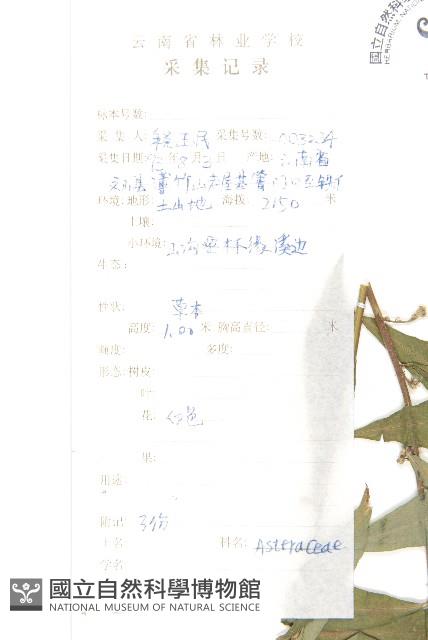 國立自然科
HERBARIUM, NATION
云南省林业学校
采集记录
标本号数:
采集人: 税玉民 采集号数: 003224
采集日期: 年 8月 3日 产地: 云南省
环境: 地形: 土山地 海拔: 2150 米
土壤:
小环境: 林缘溪边
生态:
性状: 草本
高度: 1.00 米 胸高直径: 米
频度: 多度:
形态: 树皮:
叶:
花: 红色
果:
用途:
附记: 3份
土名: 科名: Asteraceae
学名:
國立自然科學博物館
NATIONAL MUSEUM OF NATURAL SCIENCE